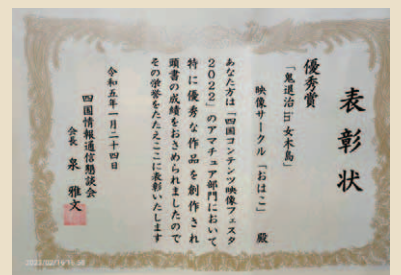 表彰状
優秀賞
「鬼退治in女木島」
映像サークル「おはこ」 殿
あなた方は「四国コンテンツ映像フェスタ
2022」のアマチュア部門において
特に優秀な作品を創作され
頭書の成績をおさめられましたので
その栄誉をたたえここに表彰いたします
令和五年一月二十四日
四国情報通信懇談会
会長 泉 雅文
2023/02/19 15:58